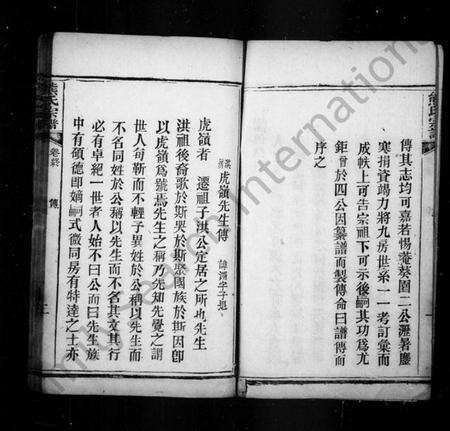 傳其志均可嘉若惕菴葵圃二公瀝暑塵
寒捐資竭力將九房世系一一考訂彙而
成帙上可告宗祖下可示後嗣其功爲尤
鉅曾於四公因纂譜而製傳命曰譜傳而
序之
虎嶺先生傳
虎嶺者 遷祖子淇公定居之所也先生
淇祖後裔歌於斯哭於斯聚國族於斯因即
以虎嶺爲號焉先生之稱乃先知先覺之謂
世人每靳而不輕予異姓於公稱以先生而
不名同姓於公稱以先生而不名其文其行
必有卓絕一世者人始不曰公而曰先生族
中有碩德即嫡嗣式微同房有特達之士亦
熊氏宗譜
卷終
傳
熊氏宗譜
Internation